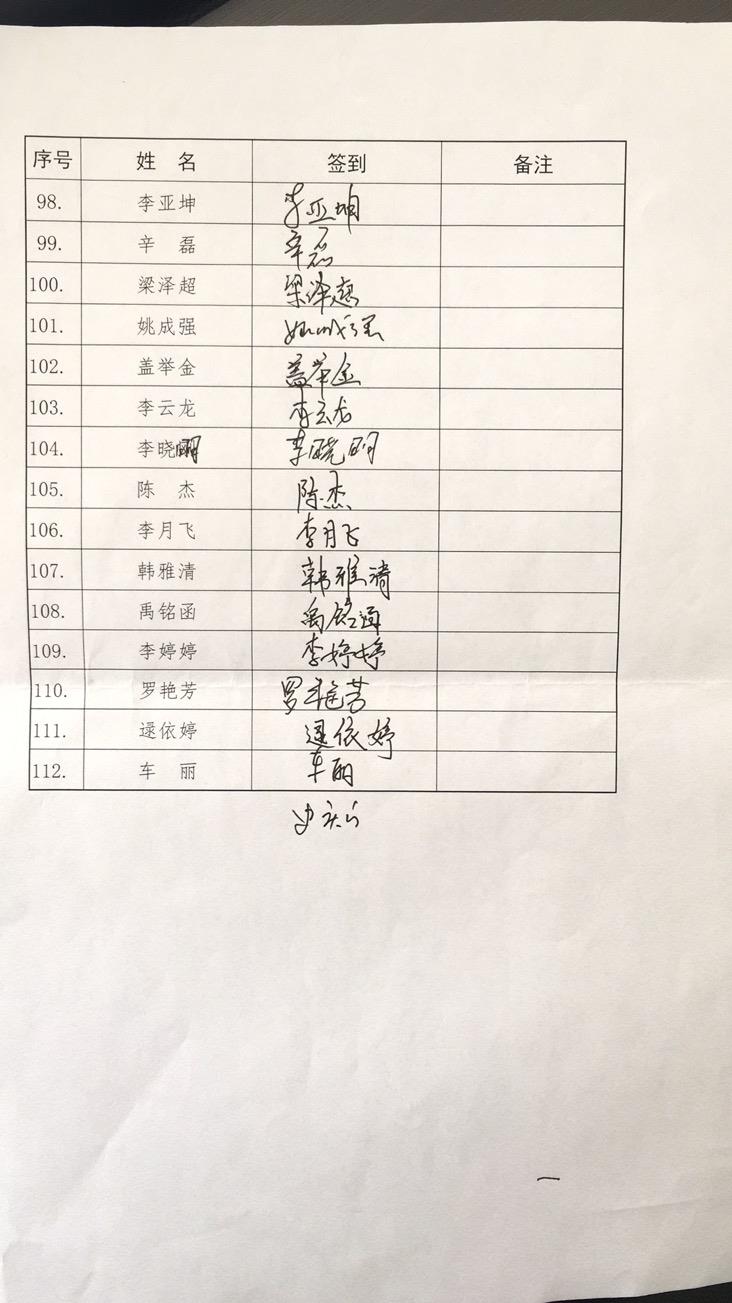 序号 姓 名 签到 备注
98. 李亚坤 李亚坤
99. 辛 磊 辛磊
100. 梁泽超 梁泽超
101. 姚成强 姚成强
102. 盖举金 盖举金
103. 李云龙 李云龙
104. 李晓明 李晓明
105. 陈 杰 陈杰
106. 李月飞 李月飞
107. 韩雅清 韩雅清
108. 禹铭函 禹铭函
109. 李婷婷 李婷婷
110. 罗艳芳 罗艳芳
111. 逯依婷 逯依婷
112. 车 丽 车丽